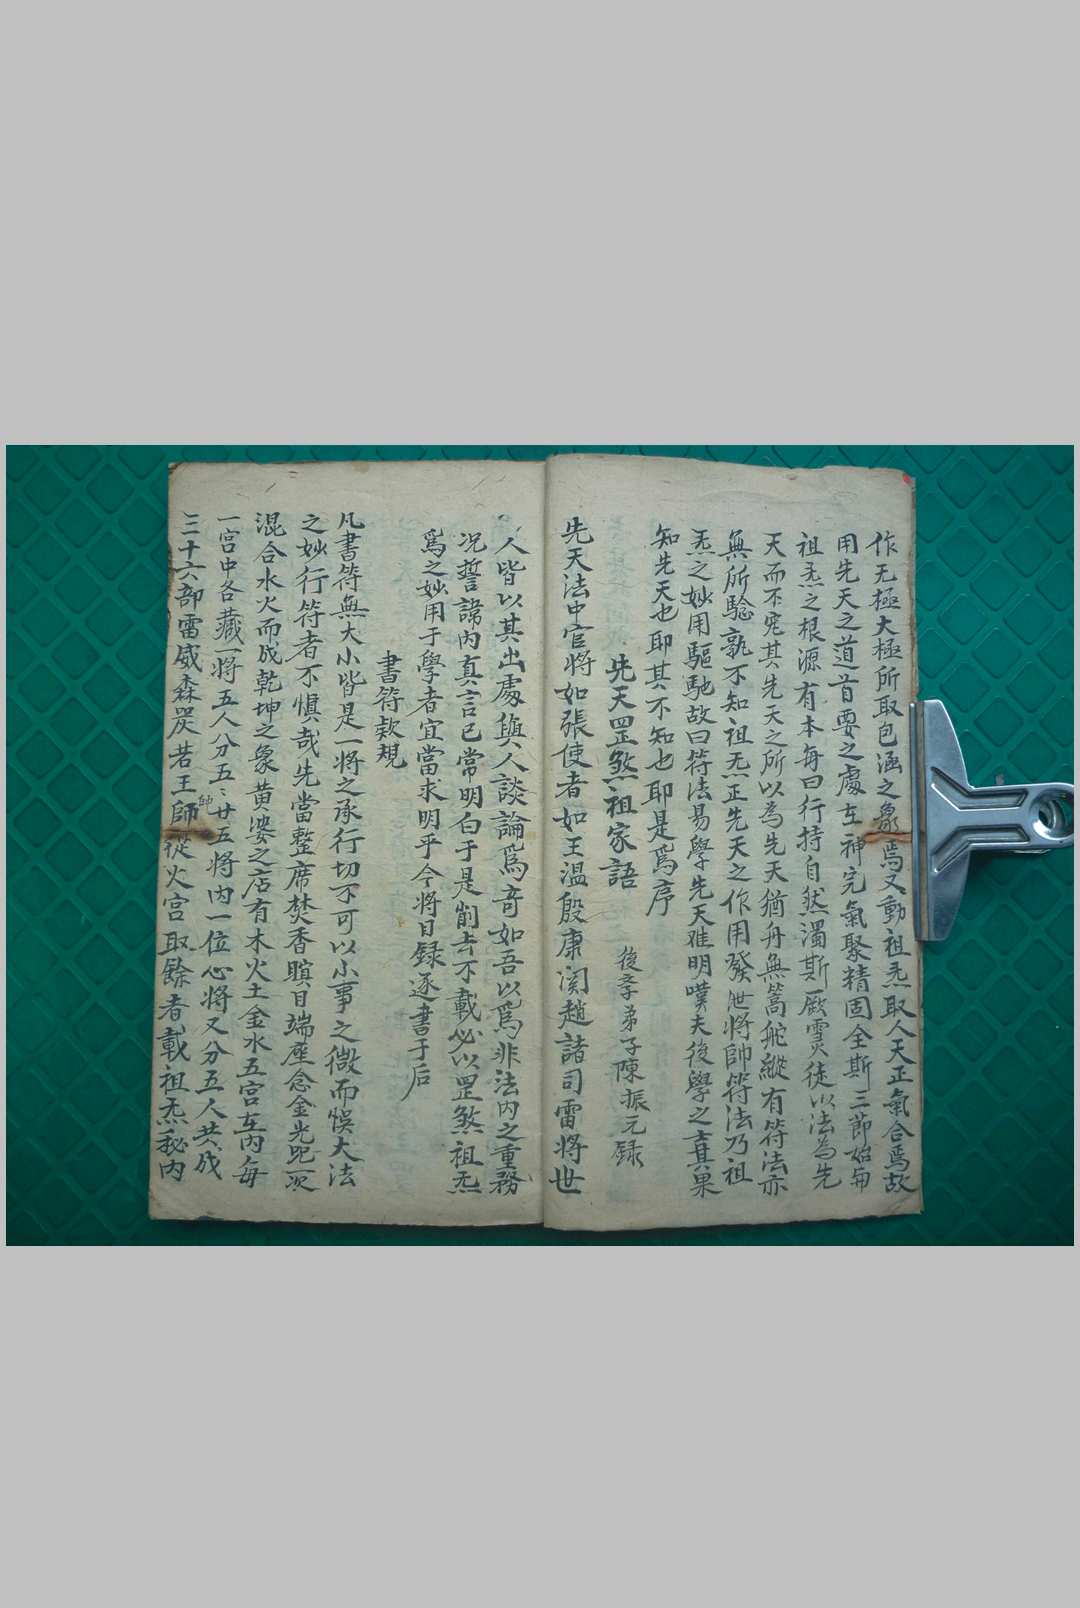 作无極大極所取包涵之象焉又動祖炁取人天正氣合焉故
用先天之道首要之處在神完氣聚精固全斯三節始毎
祖炁之根源有本每曰行持自然濁斯厥雷徒以法為先
天而不究其先天之所以為先天猶舟無篙舵縱有符法亦
無所驗孰不知祖炁正先天之作用發泄將帥符法乃祖
炁之妙用驅馳故曰符法易學先天难明嘆夫後學之真果
知先天也耶其不知也耶是爲序
後學弟子陳振元録
先天罡煞祖家語
先天法中官將如張使者如王溫殷康関趙諸司雷將世
人皆以其出處與人談論爲竒如吾以爲非法内之重務
况誓諱内真言已常明白于是削去不載必以罡煞祖炁
爲之妙用于學者宜當求明乎今將目録逐書于后
書符欵規
凡書符無大小皆是一將之承行切不可以小事之微而悞大法
之妙行符者不慎哉先當整席焚香瞑目端座念金光呪一次
混合水火而成乾坤之象黄婆之店有木火土金水五宫在内每
一宫中各藏一將五人分五〻廿五將内一位心將又分五人共成
三十六部雷威森罗若王師帥從火宫取餘者載祖炁秘内